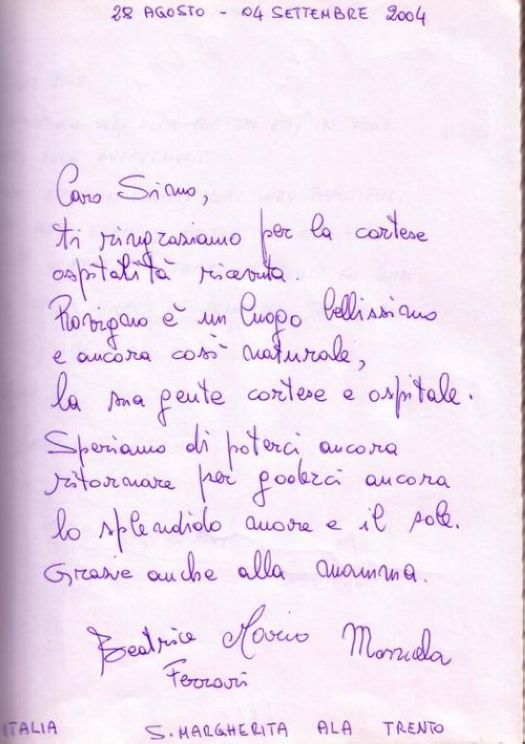 28 AGOSTO - 04 SETTEMBRE 2004
Caro Simo,
ti ringraziamo per la cortese
ospitalità ricevuta.
Rovigno è un luogo bellissimo
e ancora così naturale,
la sua gente cortese e ospitale.
Speriamo di poterci ancora
ritornare per goderci ancora
lo splendido mare e il sole.
Grazie anche alla mamma.
Beatrice Mario
Ferrari
ITALIA S. MARGHERITA ALA TRENTO